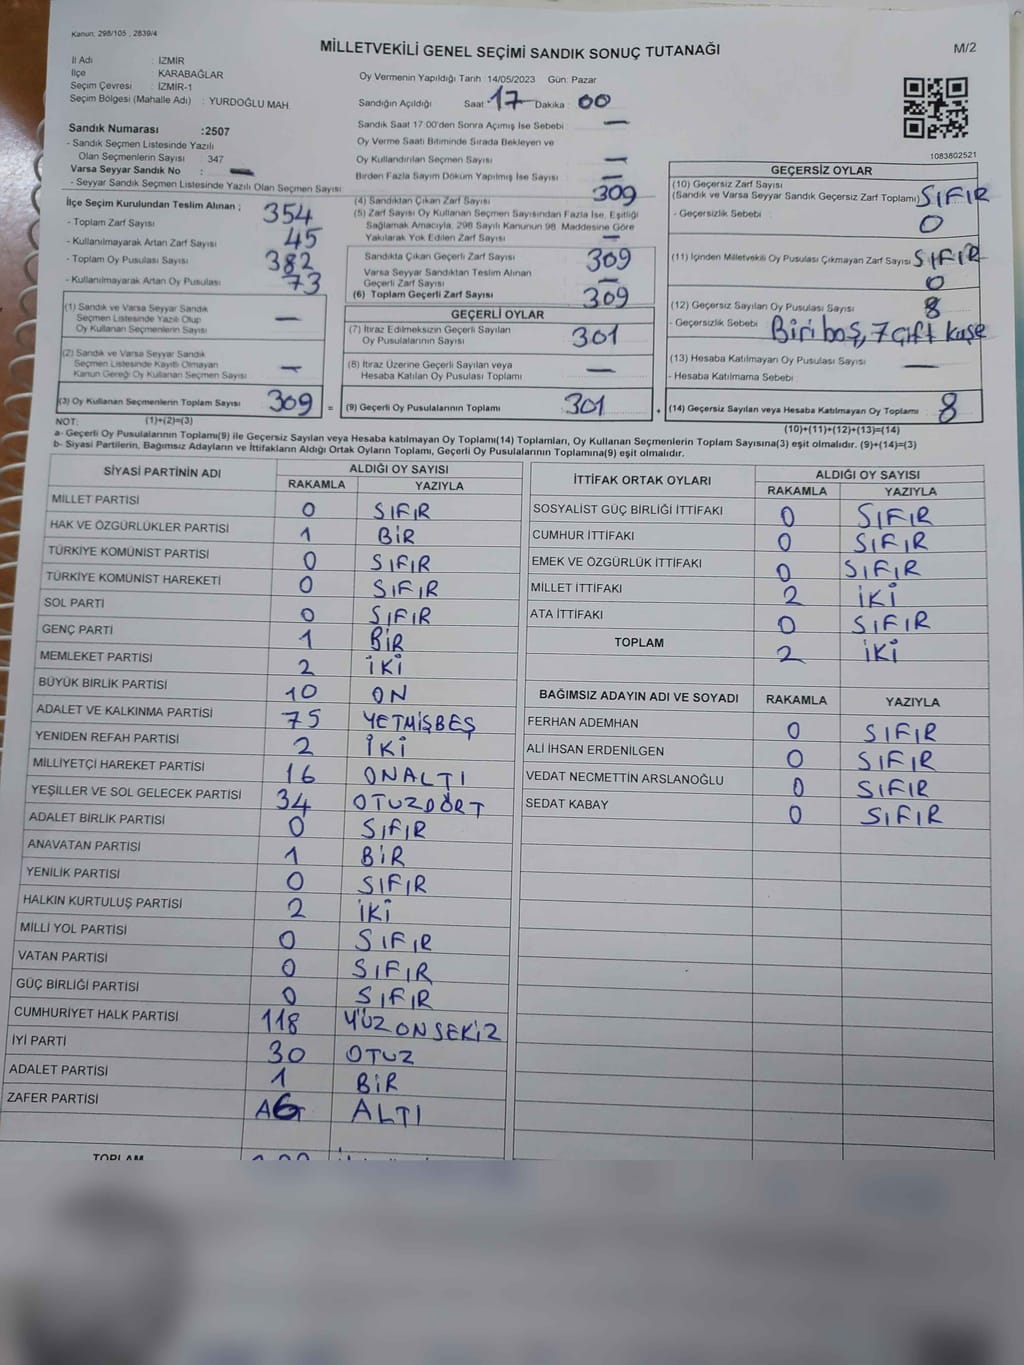 Kanun, 298/105 , 2839/4
MİLLETVEKİLİ GENEL SEÇİMİ SANDIK SONUÇ TUTANAĞI
M/2
İl Adı : İZMİR
İlçe KARABAĞLAR
Seçim Çevresi : İZMİR-1
Seçim Bölgesi (Mahalle Adı) : YURDOĞLU MAH.
Sandık Numarası :2507
- Sandık Seçmen Listesinde Yazılı
Olan Seçmenlerin Sayısı : 347
Varsa Seyyar Sandık No : —
- Seyyar Sandık Seçmen Listesinde Yazılı Olan Seçmen Sayısı
Oy Vermenin Yapıldığı Tarih :14/05/2023 Gün: Pazar
Sandığın Açıldığı Saat 17 Dakika 00
Sandık Saat 17:00'den Sonra Açılmış İse Sebebi —
Oy Verme Saati Bitiminde Sırada Bekleyen ve
Oy Kullandırılan Seçmen Sayısı —
Birden Fazla Sayım Döküm Yapılmış İse Sayısı —
1083802521
İlçe Seçim Kurulundan Teslim Alınan ; 354
- Toplam Zarf Sayısı
- Kullanılmayarak Artan Zarf Sayısı 45
- Toplam Oy Pusulası Sayısı 382
- Kullanılmayarak Artan Oy Pusulası 73
(1) Sandık ve Varsa Seyyar Sandık
Seçmen Listesinde Yazılı Olup
Oy Kullanan Seçmenlerin Sayısı —
(2) Sandık ve Varsa Seyyar Sandık
Seçmen Listesinde Kayıtlı Olmayan
Kanun Gereği Oy Kullanan Seçmen Sayısı —
(3) Oy Kullanan Seçmenlerin Toplam Sayısı 309 =
(4) Sandıktan Çıkan Zarf Sayısı 309
(5) Zarf Sayısı Oy Kullanan Seçmen Sayısından Fazla İse, Eşitliği
Sağlamak Amacıyla, 298 Sayılı Kanunun 98. Maddesine Göre
Yakılarak Yok Edilen Zarf Sayısı —
Sandıkta Çıkan Geçerli Zarf Sayısı 309
Varsa Seyyar Sandıktan Teslim Alınan
Geçerli Zarf Sayısı —
(6) Toplam Geçerli Zarf Sayısı 309
GEÇERLİ OYLAR
(7) İtiraz Edilmeksizin Geçerli Sayılan
Oy Pusulalarının Sayısı 301
(8) İtiraz Üzerine Geçerli Sayılan veya
Hesaba Katılan Oy Pusulası Toplamı —
(9) Geçerli Oy Pusulalarının Toplamı 301 +
GEÇERSİZ OYLAR
(10) Geçersiz Zarf Sayısı
(Sandık ve Varsa Seyyar Sandık Geçersiz Zarf Toplamı) SIFIR
- Geçersizlik Sebebi : 0
(11) İçinden Milletvekili Oy Pusulası Çıkmayan Zarf Sayısı SIFIR
0
(12) Geçersiz Sayılan Oy Pusulası Sayısı 8
- Geçersizlik Sebebi Biri boş, 7 Çift kaşe
(13) Hesaba Katılmayan Oy Pusulası Sayısı —
- Hesaba Katılmama Sebebi
(14) Geçersiz Sayılan veya Hesaba Katılmayan Oy Toplamı 8
NOT: (1)+(2)=(3)
(10)+(11)+(12)+(13)=(14)
a- Geçerli Oy Pusulalarının Toplamı(9) ile Geçersiz Sayılan veya Hesaba katılmayan Oy Toplamı(14) Toplamları, Oy Kullanan Seçmenlerin Toplam Sayısına(3) eşit olmalıdır. (9)+(14)=(3)
b- Siyasi Partilerin, Bağımsız Adayların ve İttifakların Aldığı Ortak Oyların Toplamı, Geçerli Oy Pusulalarının Toplamına(9) eşit olmalıdır.
SİYASİ PARTİNİN ADI ALDIĞI OY SAYISI
RAKAMLA YAZIYLA
MİLLET PARTİSİ 0 SIFIR
HAK VE ÖZGÜRLÜKLER PARTİSİ 1 BİR
TÜRKİYE KOMÜNİST PARTİSİ 0 SIFIR
TÜRKİYE KOMÜNİST HAREKETİ 0 SIFIR
SOL PARTİ 0 SIFIR
GENÇ PARTİ 1 BİR
MEMLEKET PARTİSİ 2 İKİ
BÜYÜK BİRLİK PARTİSİ 10 ON
ADALET VE KALKINMA PARTİSİ 75 YETMİŞBEŞ
YENİDEN REFAH PARTİSİ 2 İKİ
MİLLİYETÇİ HAREKET PARTİSİ 16 ONALTI
YEŞİLLER VE SOL GELECEK PARTİSİ 34 OTUZDÖRT
ADALET BİRLİK PARTİSİ 0 SIFIR
ANAVATAN PARTİSİ 1 BİR
YENİLİK PARTİSİ 0 SIFIR
HALKIN KURTULUŞ PARTİSİ 2 İKİ
MİLLİ YOL PARTİSİ 0 SIFIR
VATAN PARTİSİ 0 SIFIR
GÜÇ BİRLİĞİ PARTİSİ 0 SIFIR
CUMHURİYET HALK PARTİSİ 118 YÜZ ONSEKİZ
İYİ PARTİ 30 OTUZ
ADALET PARTİSİ 1 BİR
ZAFER PARTİSİ 6 ALTI
TOPLAM
İTTİFAK ORTAK OYLARI ALDIĞI OY SAYISI
RAKAMLA YAZIYLA
SOSYALİST GÜÇ BİRLİĞİ İTTİFAKI 0 SIFIR
CUMHUR İTTİFAKI 0 SIFIR
EMEK VE ÖZGÜRLÜK İTTİFAKI 0 SIFIR
MİLLET İTTİFAKI 2 İKİ
ATA İTTİFAKI 0 SIFIR
TOPLAM 2 İKİ
BAĞIMSIZ ADAYIN ADI VE SOYADI RAKAMLA YAZIYLA
FERHAN ADEMHAN 0 SIFIR
ALİ İHSAN ERDENİLGEN 0 SIFIR
VEDAT NECMETTİN ARSLANOĞLU 0 SIFIR
SEDAT KABAY 0 SIFIR